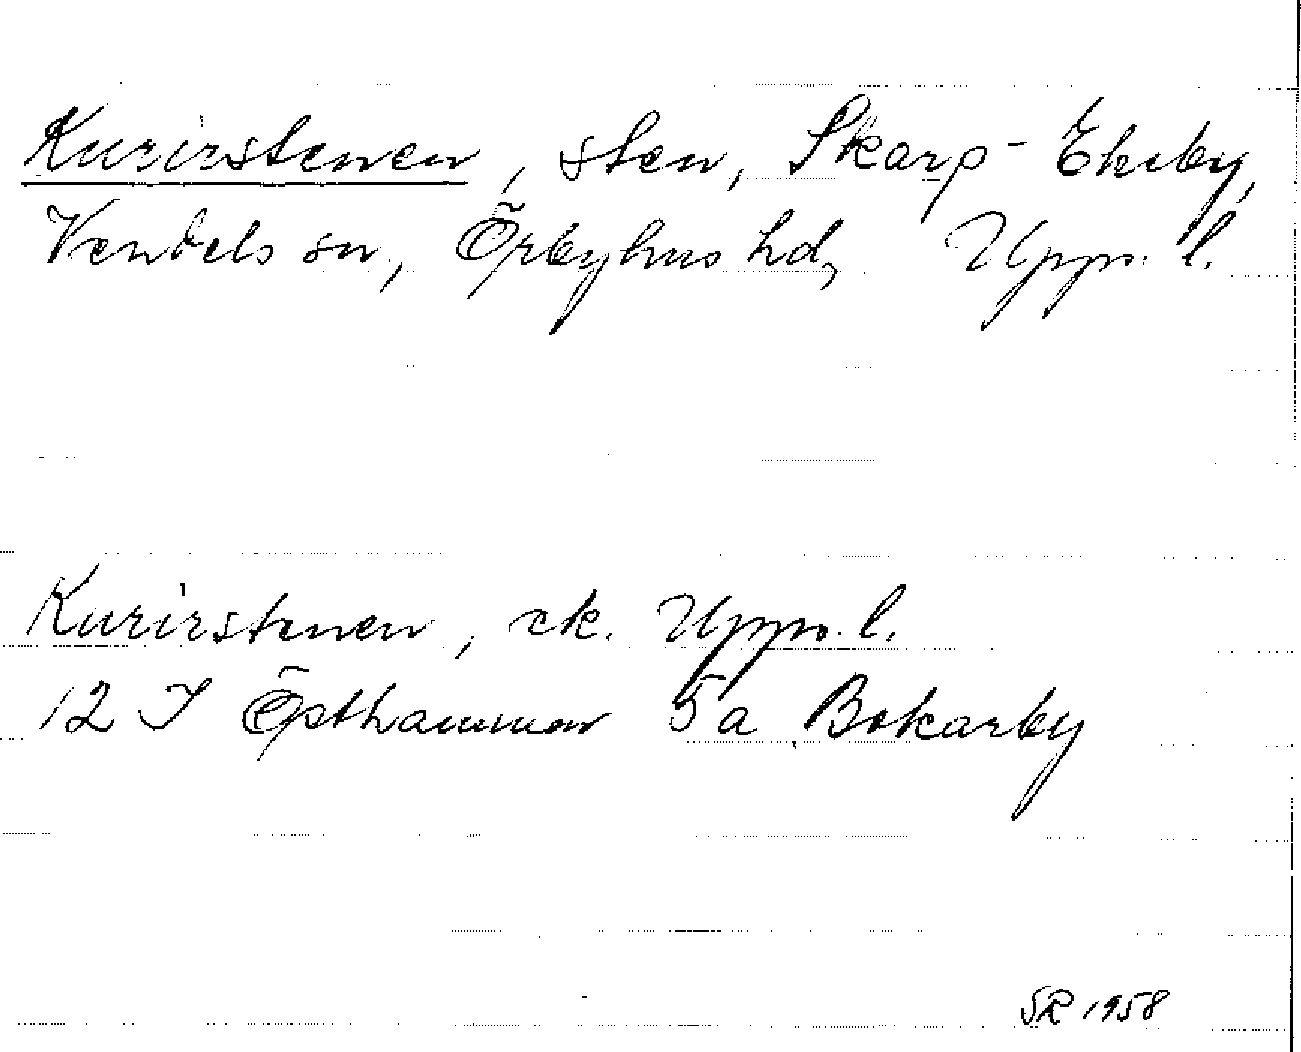 Kurirstenen, sten, Skarp-Ekeby,
Vendels sn, Örbyhus hd, Upps. l.
Kurirstenen, ek. Upps. l.
12 I Östhammar 5a Bokarby
SR 1958